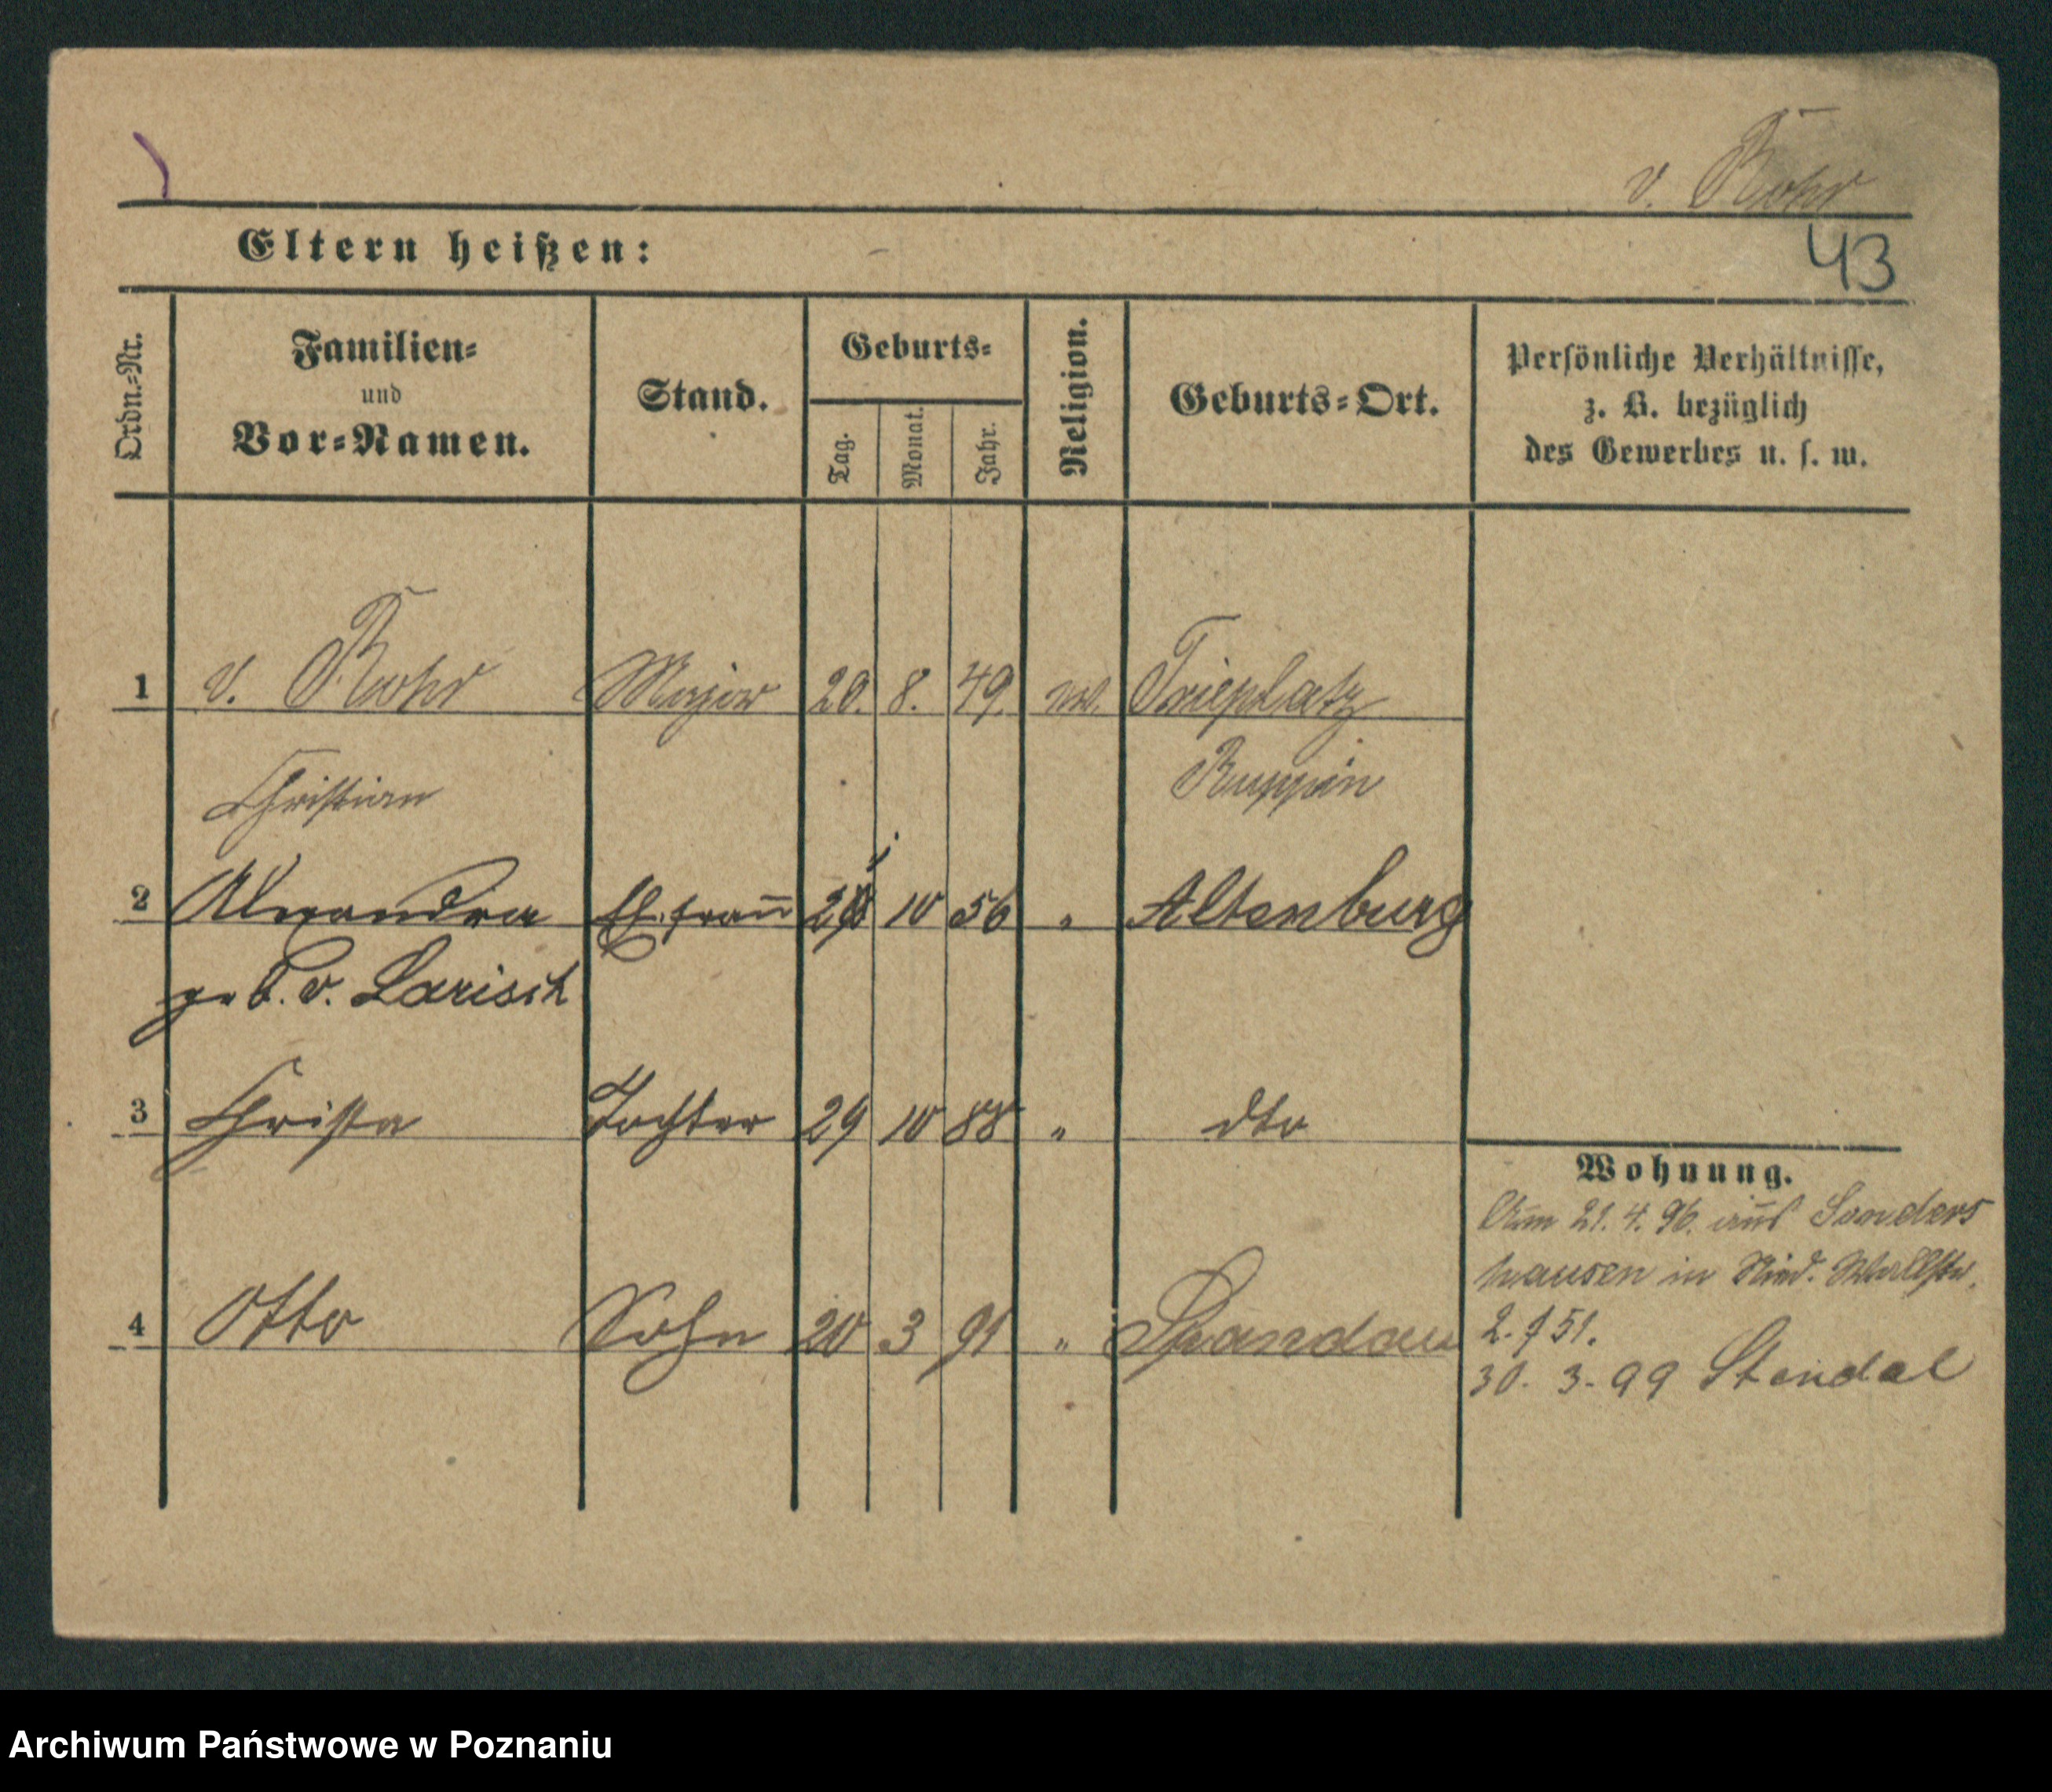 v. Rohr
43
Eltern heißen:
Ordn.-Nr.
Familien-
und
Vor-Namen.
Stand.
Geburts-
Tag.
Monat.
Jahr.
Religion.
Geburts-Ort.
Persönliche Verhältnisse,
z. B. bezüglich
des Gewerbes u. s. w.
1 v. Rohr Major 20. 8. 49. Trieplatz
Christian Ruppin
2 Alexandra Ehefrau 10 56 " Altenburg
geb. v. Larisch
3 Christa Tochter 29 10 88 " dto
Wohnung.
Am 21. 4. 96. aus Sonders
hausen in Nied. Wallstr.
4 Otto Sohn 20 3 91 " Spandau
2. f 51.
30. 3. 99 Stendal
Archiwum Państwowe w Poznaniu